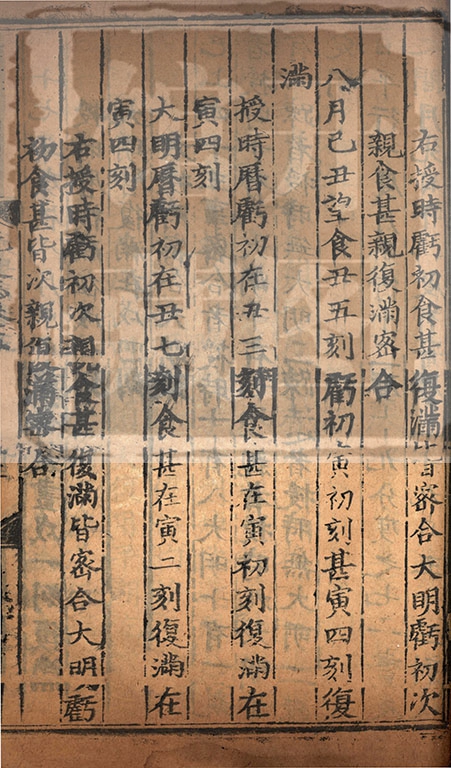 右授時虧初食甚復滿皆密合大明虧初次
親食甚親復滿密合
八月己丑望食丑五刻虧初寅初刻甚寅四刻復
滿
授時曆虧初在丑三刻食甚在寅初刻復滿在
寅四刻
大明曆虧初在丑七刻食甚在寅二刻復滿在
寅四刻
右授時虧初次親食甚復滿皆密合大明虧
初食甚皆次親復滿密合